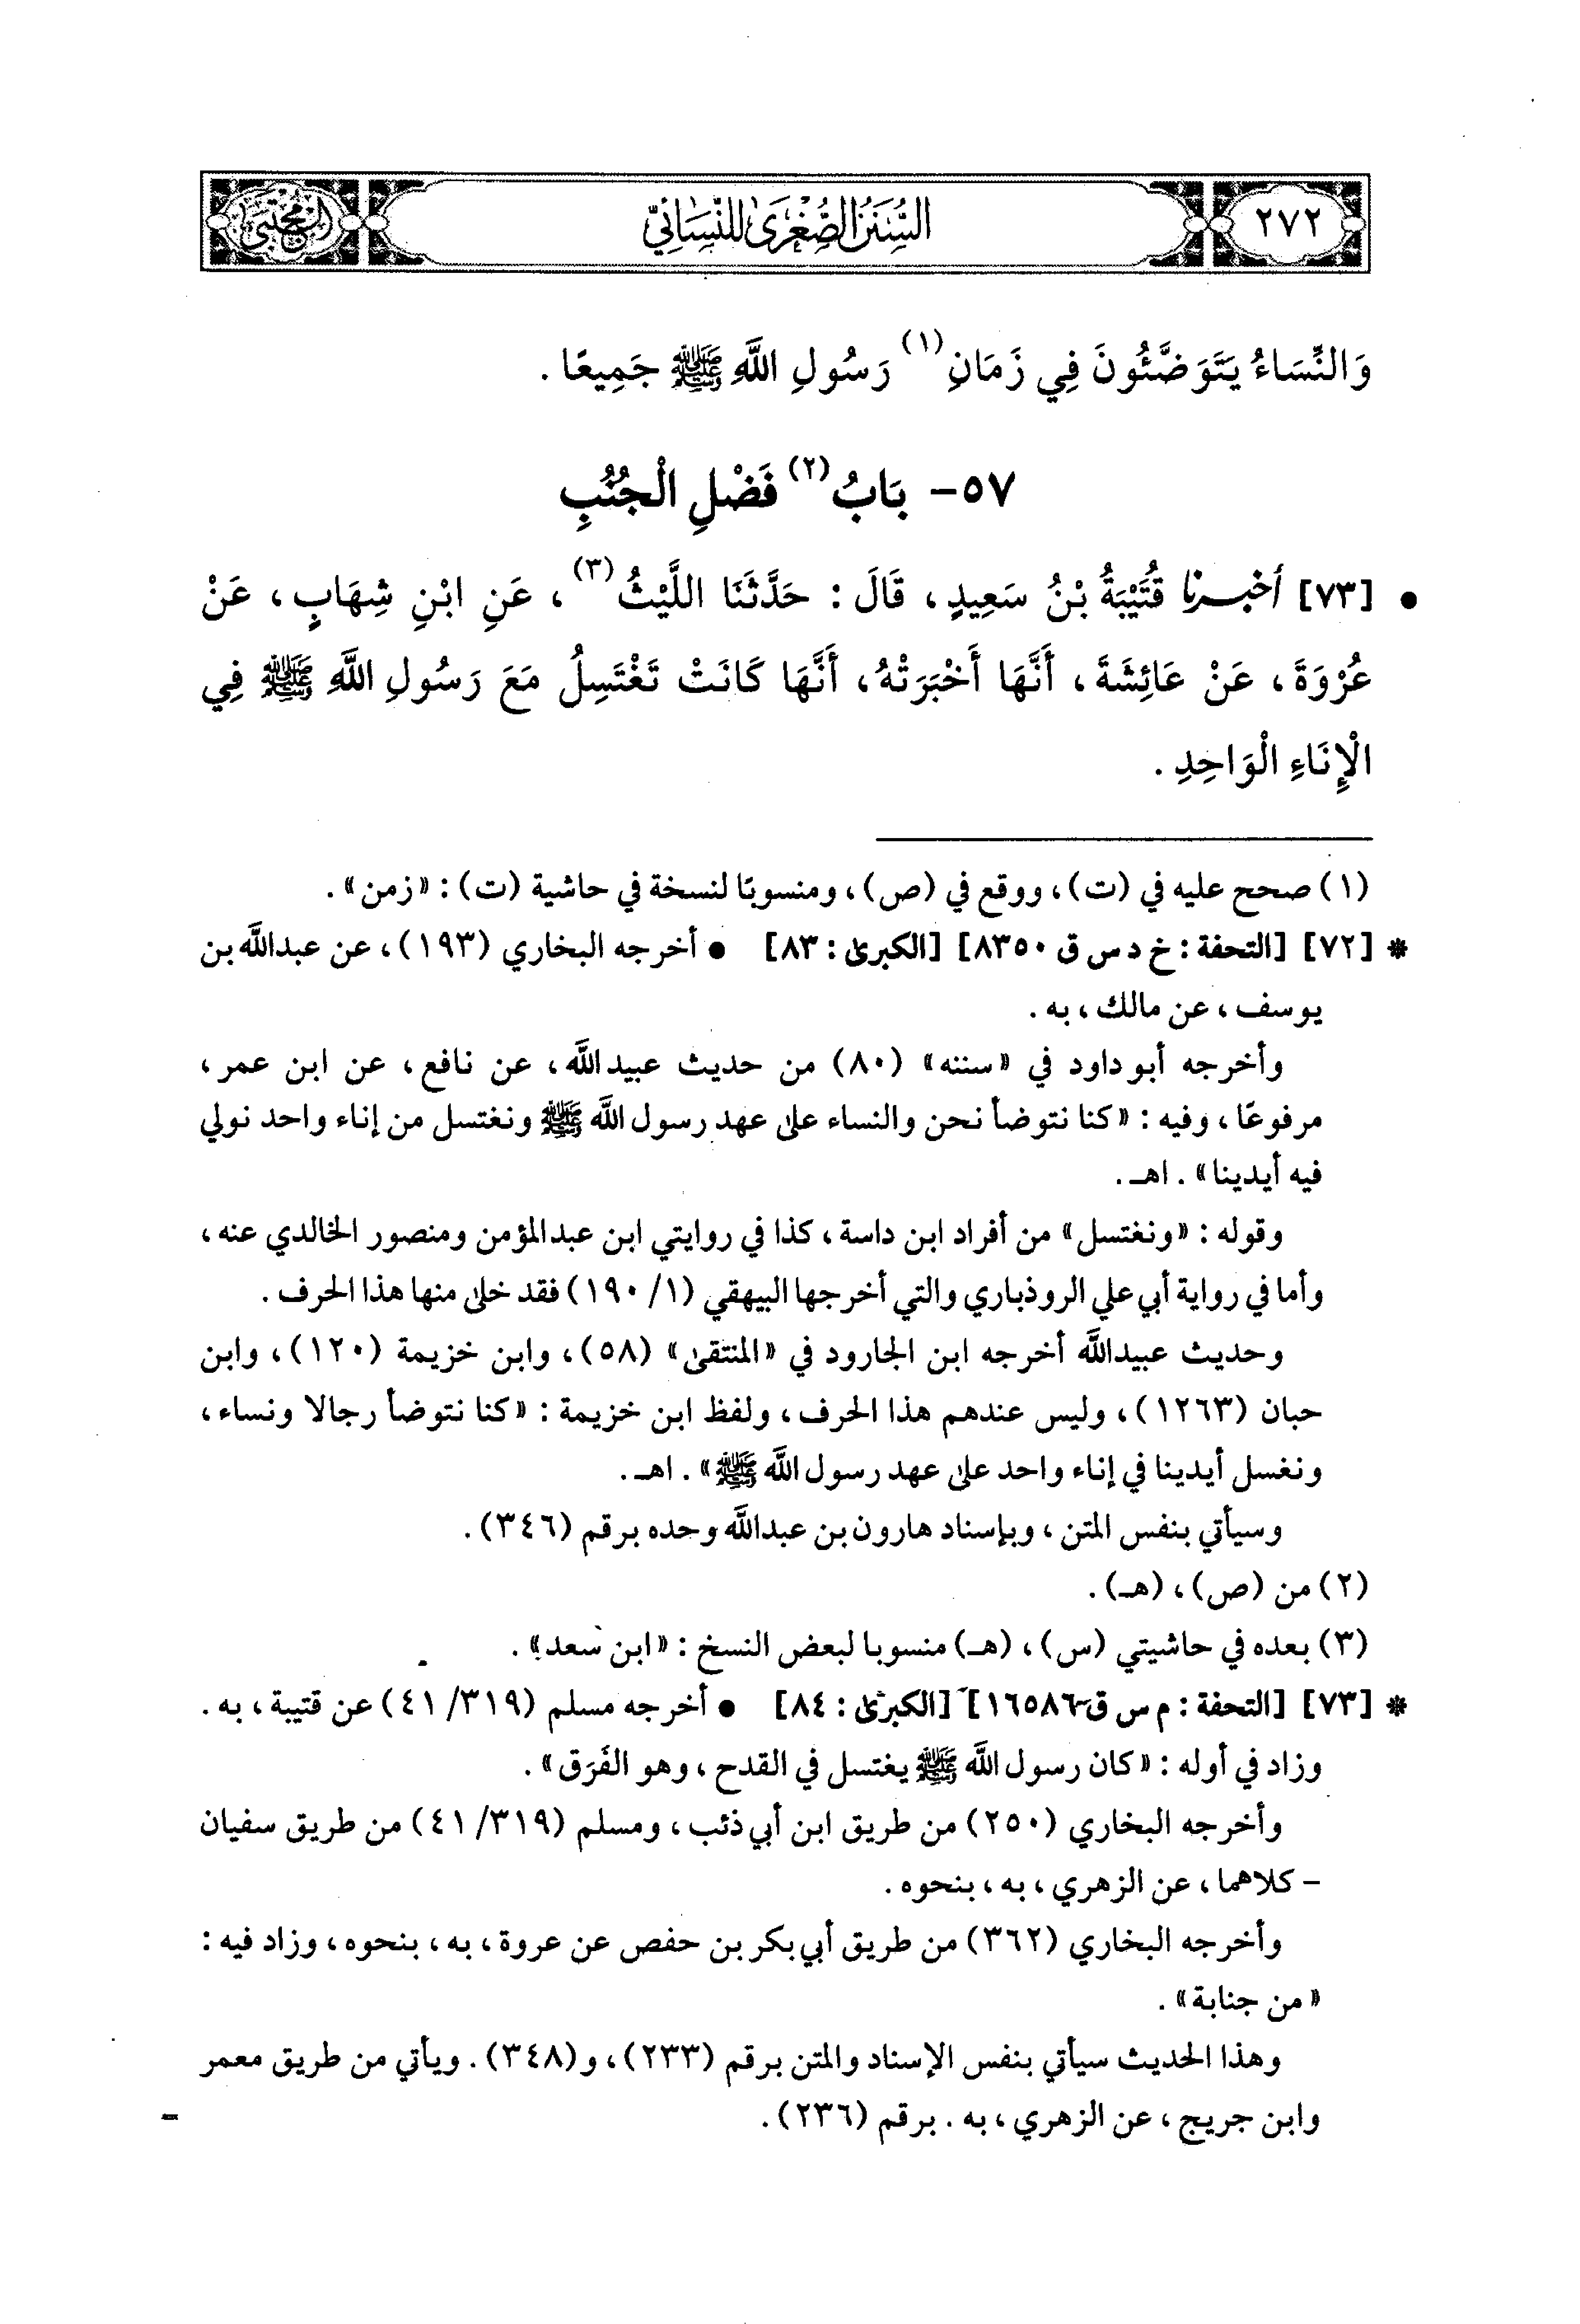 ٢٧٢
السُّنَنُ الصُّغْرَىٰ لِلنَّسَائِيِّ
المجتبى
وَالنِّسَاءُ يَتَوَضَّئُونَ فِي زَمَانِ(١) رَسُولِ اللَّهِ ﷺ جَمِيعًا .
٥٧- بَابُ(٢) فَضْلِ الْجُنُبِ
• [٧٣] أَخْبَرَنَا قُتَيْبَةُ بْنُ سَعِيدٍ ، قَالَ : حَدَّثَنَا اللَّيْثُ(٣) ، عَنِ ابْنِ شِهَابٍ ، عَنْ
عُرْوَةَ ، عَنْ عَائِشَةَ ، أَنَّهَا أَخْبَرَتْهُ ، أَنَّهَا كَانَتْ تَغْتَسِلُ مَعَ رَسُولِ اللَّهِ ﷺ فِي
الْإِنَاءِ الْوَاحِدِ .
(١) صحح عليه في (ت) ، ووقع في (ص) ، ومنسوبًا لنسخة في حاشية (ت) : «زمن» .
* [٧٢] [التحفة : خ د س ق ٨٣٥٠] [الكبرى : ٨٣] • أخرجه البخاري (١٩٣) ، عن عبدالله بن
يوسف ، عن مالك ، به .
وأخرجه أبو داود في «سننه» (٨٠) من حديث عبيدالله ، عن نافع ، عن ابن عمر ،
مرفوعًا ، وفيه : «كنا نتوضأ نحن والنساء على عهد رسول الله ﷺ ونغتسل من إناء واحد نولي
فيه أيدينا» . اهـ .
وقوله : «ونغتسل» من أفراد ابن داسة ، كذا في روايتي ابن عبدالمؤمن ومنصور الخالدي عنه ،
وأما في رواية أبي علي الروذباري والتي أخرجها البيهقي (١/ ١٩٠) فقد خلى منها هذا الحرف .
وحديث عبيدالله أخرجه ابن الجارود في «المنتقى» (٥٨) ، وابن خزيمة (١٢٠) ، وابن
حبان (١٢٦٣) ، وليس عندهم هذا الحرف ، ولفظ ابن خزيمة : «كنا نتوضأ رجالا ونساء ،
ونغسل أيدينا في إناء واحد على عهد رسول الله ﷺ» . اهـ .
وسيأتي بنفس المتن ، وبإسناد هارون بن عبدالله وحده برقم (٣٤٦) .
(٢) من (ص) ، (هـ) .
(٣) بعده في حاشيتي (س) ، (هـ) منسوبا لبعض النسخ : «ابن سعد» .
* [٧٣] [التحفة : م س ق ١٦٥٨٦] [الكبرى : ٨٤] • أخرجه مسلم (٤١/٣١٩) عن قتيبة ، به .
وزاد في أوله : «كان رسول الله ﷺ يغتسل في القدح ، وهو الفَرَق» .
وأخرجه البخاري (٢٥٠) من طريق ابن أبي ذئب ، ومسلم (٤١/٣١٩) من طريق سفيان
- كلاهما ، عن الزهري ، به ، بنحوه .
وأخرجه البخاري (٣٦٢) من طريق أبي بكر بن حفص عن عروة ، به ، بنحوه ، وزاد فيه :
«من جنابة» .
وهذا الحديث سيأتي بنفس الإسناد والمتن برقم (٢٣٣) ، و(٣٤٨) . ويأتي من طريق معمر
وابن جريج ، عن الزهري ، به . برقم (٢٣٦) .